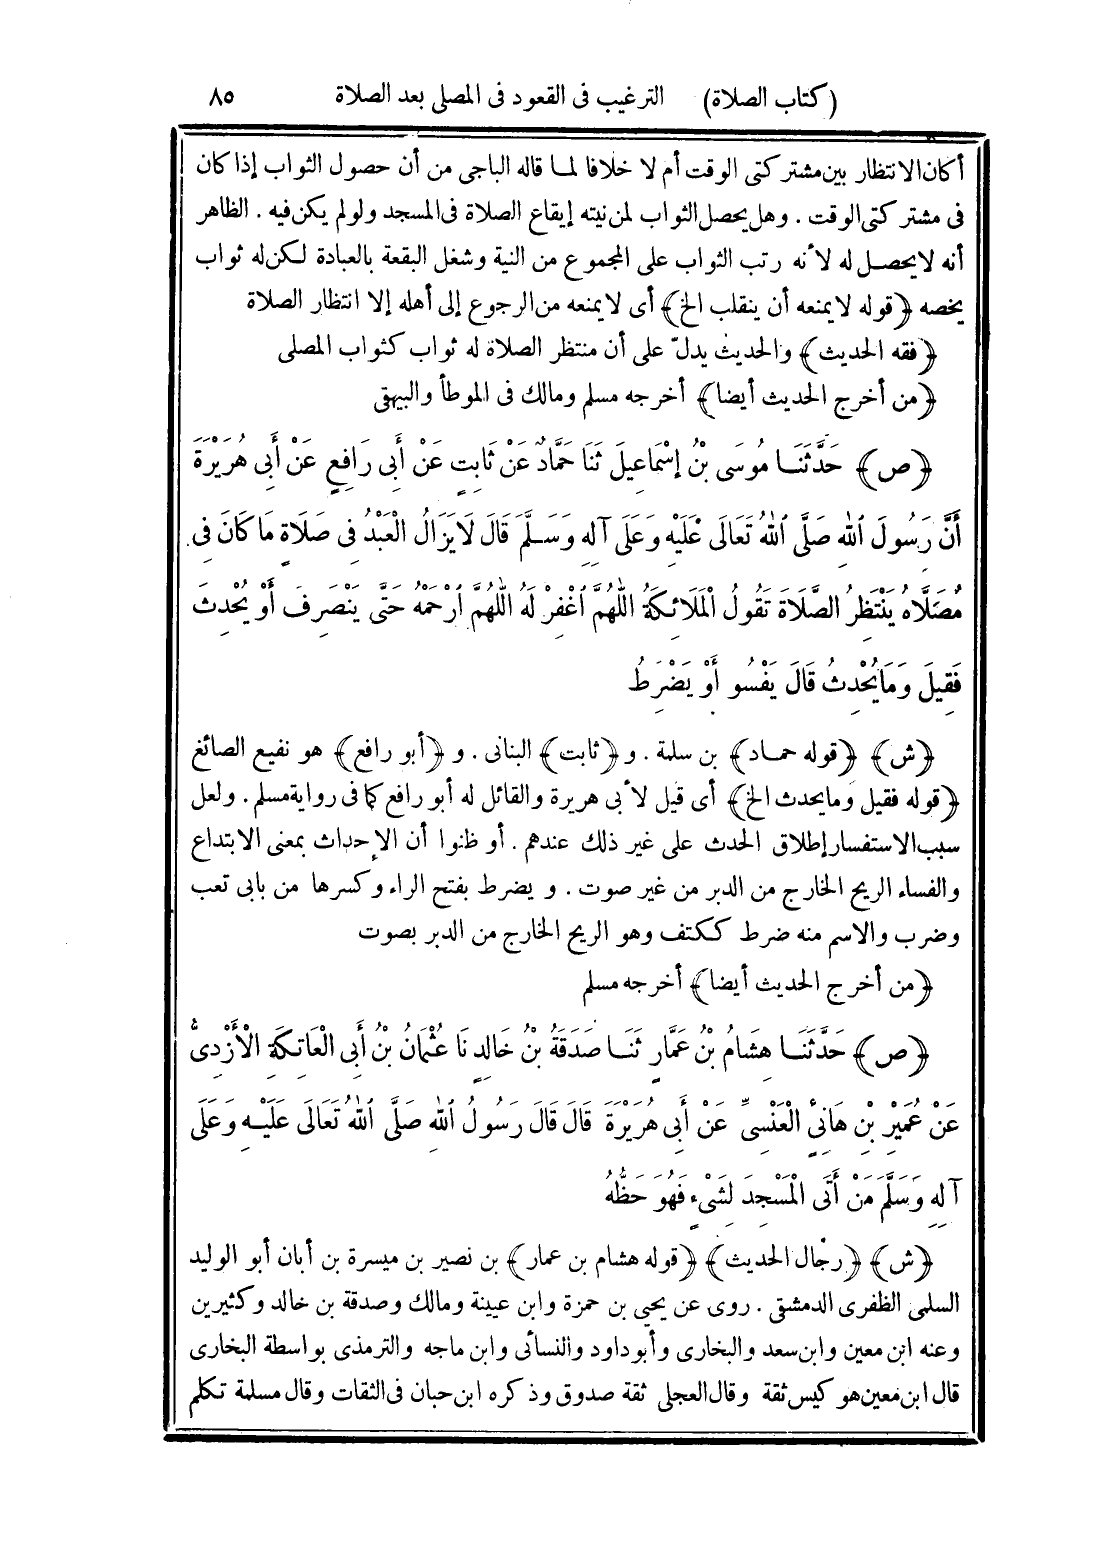 (كتاب الصلاة) الترغيب فى القعود فى المصلى بعد الصلاة ٨٥
أكان الانتظار بين مشتركتى الوقت أم لا خلافا لما قاله الباجى من أن حصول الثواب إذا كان
فى مشتركتى الوقت . وهل يحصل الثواب لمن نيته إيقاع الصلاة فى المسجد ولو لم يكن فيه . الظاهر
أنه لا يحصل له لأنه رتب الثواب على المجموع من النية وشغل البقعة بالعبادة لكن له ثواب
يخصه ﴿قوله لا يمنعه أن ينقلب الخ﴾ أى لا يمنعه من الرجوع إلى أهله إلا انتظار الصلاة
﴿فقه الحديث﴾ والحديث يدلّ على أن منتظر الصلاة له ثواب كثواب المصلى
﴿من أخرج الحديث أيضا﴾ أخرجه مسلم ومالك فى الموطأ والبيهقى
﴿ص﴾ حَدَّثَنَا مُوسَى بْنُ إِسْمَاعِيلَ ثَنَا حَمَّادٌ عَنْ ثَابِتٍ عَنْ أَبِى رَافِعٍ عَنْ أَبِى هُرَيْرَةَ
أَنَّ رَسُولَ اللهِ صَلَّى اللهُ تَعَالَى عَلَيْهِ وَعَلَى آلِهِ وَسَلَّمَ قَالَ لَا يَزَالُ الْعَبْدُ فِى صَلَاةٍ مَا كَانَ فِى
مُصَلَّاهُ يَنْتَظِرُ الصَّلَاةَ تَقُولُ الْمَلَائِكَةُ اللّٰهُمَّ اغْفِرْ لَهُ اللّٰهُمَّ ارْحَمْهُ حَتَّى يَنْصَرِفَ أَوْ يُحْدِثَ
فَقِيلَ وَمَا يُحْدِثُ قَالَ يَفْسُو أَوْ يَضْرَطُ
﴿ش﴾ ﴿قوله حماد﴾ بن سلمة . و﴿ثابت﴾ البنانى . و﴿أبو رافع﴾ هو نفيع الصائغ
﴿قوله فقيل وما يحدث الخ﴾ أى قيل لأبى هريرة والقائل له أبو رافع كما فى رواية مسلم . ولعل
سبب الاستفسار إطلاق الحدث على غير ذلك عندهم . أو ظنوا أن الإحداث بمعنى الابتداع
والفساء الريح الخارج من الدبر من غير صوت . ويضرط بفتح الراء وكسرها من بابى تعب
وضرب والاسم منه ضرط ككتف وهو الريح الخارج من الدبر بصوت
﴿من أخرج الحديث أيضا﴾ أخرجه مسلم
﴿ص﴾ حَدَّثَنَا هِشَامُ بْنُ عَمَّارٍ ثَنَا صَدَقَةُ بْنُ خَالِدٍ نَا عُثْمَانُ بْنُ أَبِى الْعَاتِكَةِ الْأَزْدِىُّ
عَنْ عُمَيْرِ بْنِ هَانِئٍ الْعَنْسِىِّ عَنْ أَبِى هُرَيْرَةَ قَالَ قَالَ رَسُولُ اللهِ صَلَّى اللهُ تَعَالَى عَلَيْهِ وَعَلَى
آلِهِ وَسَلَّمَ مَنْ أَتَى الْمَسْجِدَ لِشَىْءٍ فَهُوَ حَظُّهُ
﴿ش﴾ ﴿رجال الحديث﴾ ﴿قوله هشام بن عمار﴾ بن نصير بن ميسرة بن أبان أبو الوليد
السلمى الظفرى الدمشقى . روى عن يحيى بن حمزة وابن عيينة ومالك وصدقة بن خالد وكثيرين
وعنه ابن معين وابن سعد والبخارى وأبو داود والنسائى وابن ماجه والترمذى بواسطة البخارى
قال ابن معين هو كيس ثقة وقال العجلى ثقة صدوق وذكره ابن حبان فى الثقات وقال مسلمة تكلم